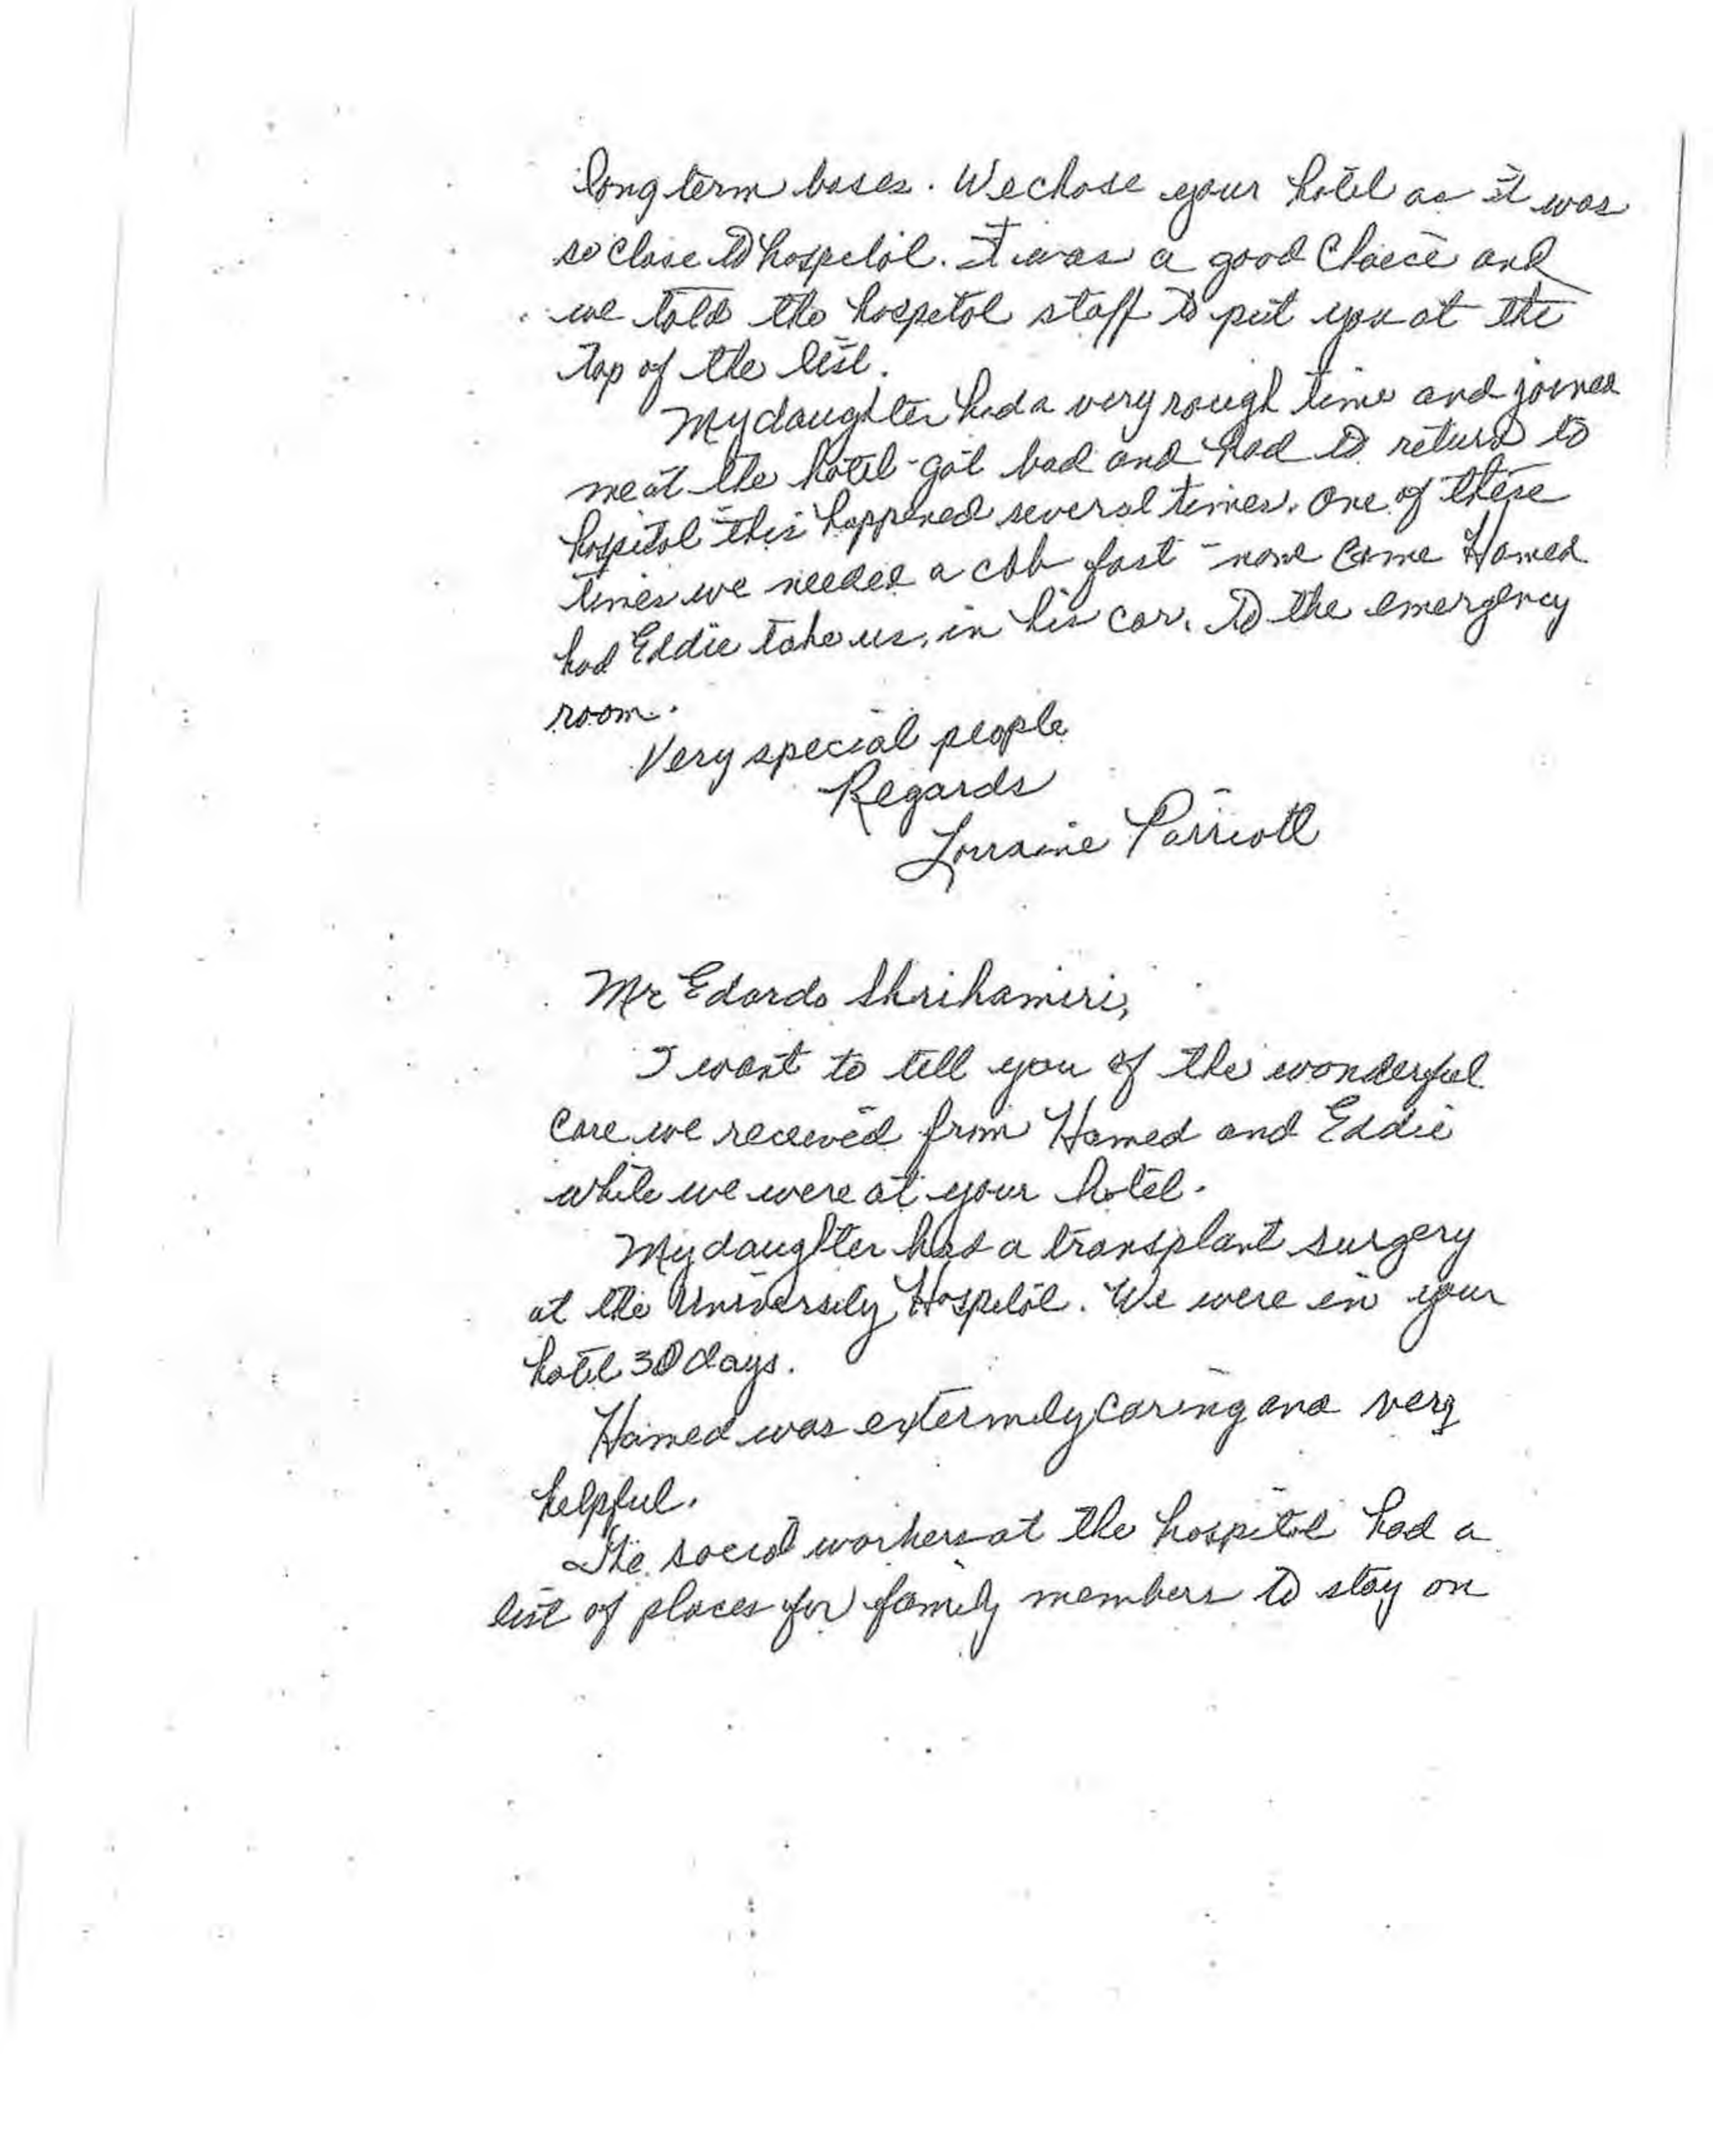 long term bases. We chose your hotel as it was
so close to hospital. It was a good choice and
we told the hospital staff to put you at the
top of the list.
My daughter had a very rough time and joined
me at the hotel - got bad and had to return to
hospital this happened several times. One of these
times we needed a cab fast - none came Hamed
had Eddie take us, in his car, to the emergency
room.
Very special people
Regards
Lorraine Parriott
Mr Edardo Shrihamiri,
I want to tell you of the wonderful
care we received from Hamed and Eddie
while we were at your hotel.
My daughter had a transplant surgery
at the University Hospital. We were in your
hotel 30 days.
Hamed was extermily caring and very
helpful.
The social workers at the hospital had a
list of places for family members to stay on